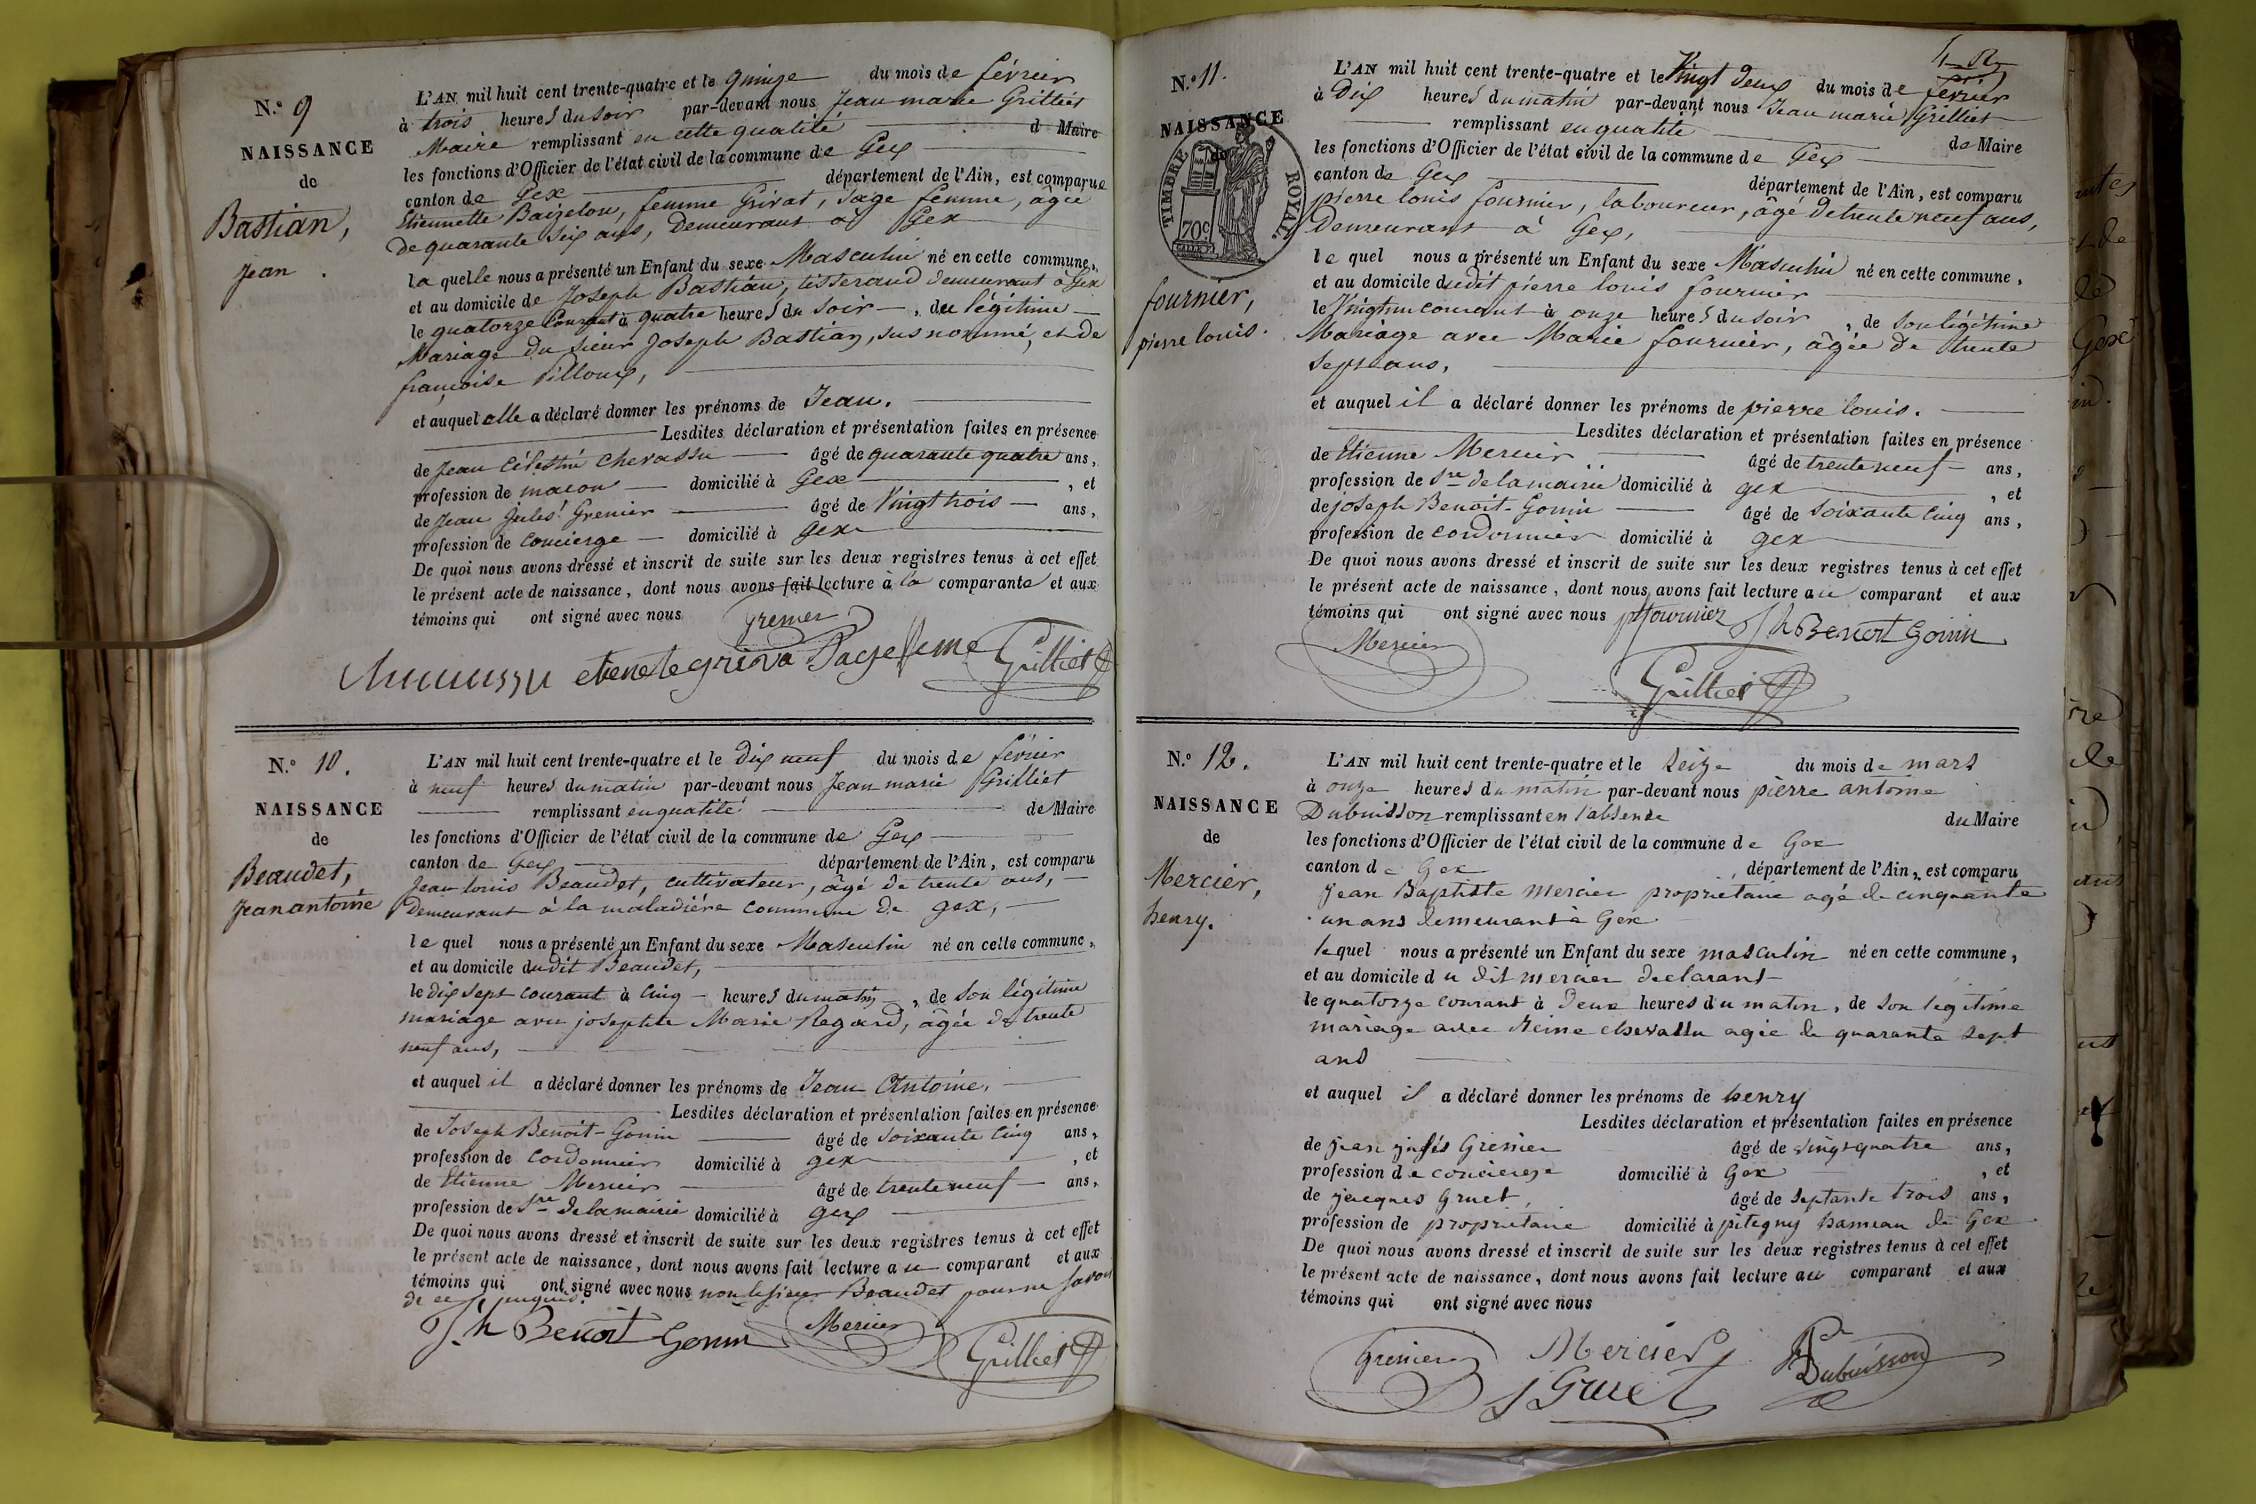 N.º 9
NAISSANCE
de
Bastian,
Jean.
L'AN mil huit cent trente-quatre et le quinze du mois de février
à trois heures du soir par-devant nous Jean marie Grilliet
Maire remplissant en cette qualité d Maire
les fonctions d'Officier de l'état civil de la commune de Gex
canton de Gex département de l'Ain, est comparue
Etiennette Baizelou, femme Grivat, Sage femme, âgée
de quarante Six ans, Demeurant à Gex
la quelle nous a présenté un Enfant du sexe Masculin né en cette commune,
et au domicile de Joseph Bastian, tisserand demeurant à Gex
le quatorze Courant à quatre heures du Soir, du légitime
Mariage du Sieur Joseph Bastian, sus nommé, et de
françoise Pilloux,
et auquel elle a déclaré donner les prénoms de Jean.
Lesdites déclaration et présentation faites en présence
de Jean Célestin Chevassu âgé de quarante quatre ans,
profession de maçon domicilié à Gex, et
de Jean Jules Grenier âgé de Vingt trois ans,
profession de concierge domicilié à Gex
De quoi nous avons dressé et inscrit de suite sur les deux registres tenus à cet effet
le présent acte de naissance, dont nous avons fait lecture à la comparante et aux
témoins qui ont signé avec nous
Grenier
etienete griva Sage feme Grilliet
N.º 10.
NAISSANCE
de
Beaudet,
Jean antoine
L'AN mil huit cent trente-quatre et le dix neuf du mois de février
à neuf heures du matin par-devant nous Jean marie Grilliet
remplissant en qualité de Maire
les fonctions d'Officier de l'état civil de la commune de Gex
canton de Gex département de l'Ain, est comparu
Jean louis Beaudet, cultivateur, âgé de trente ans,
demeurant à la maladiére commune de gex,
le quel nous a présenté un Enfant du sexe Masculin né en cette commune,
et au domicile dudit Beaudet,
le dix sept courant à Cinq heures du matin, de Son légitime
mariage avec josephte Marie Regard, âgée de trente
neuf ans,
et auquel il a déclaré donner les prénoms de Jean Antoine.
Lesdites déclaration et présentation faites en présence
de Joseph Benoit-Gonin âgé de Soixante Cinq ans,
profession de Cordonnier domicilié à gex, et
de Etienne Mercier âgé de trente neuf ans,
profession de Sre de la mairie domicilié à gex
De quoi nous avons dressé et inscrit de suite sur les deux registres tenus à cet effet
le présent acte de naissance, dont nous avons fait lecture au comparant et aux
témoins qui ont signé avec nous non le Sieur Beaudet pour ne Savoir
de ce
Jh Benoit Gonin Mercier Grilliet
N.º 11.
NAISSANCE
de
TIMBRE ROYAL.
70c
fournier,
pierre louis.
L'AN mil huit cent trente-quatre et le Vingt deux du mois de février
à Dix heures du matin par-devant nous Jean marie Grilliet
remplissant en qualité de Maire
les fonctions d'Officier de l'état civil de la commune de Gex
canton de Gex département de l'Ain, est comparu
pierre louis fournier, laboureur, âgé de trente neuf ans,
Demeurant à Gex,
le quel nous a présenté un Enfant du sexe Masculin né en cette commune,
et au domicile dudit pierre louis fournier
le Vingt un courant à onze heures du soir, de Son légitime
Mariage avec Marie fournier, âgée de trente
Sept ans,
et auquel il a déclaré donner les prénoms de pierre louis.
Lesdites déclaration et présentation faites en présence
de Etienne Mercier âgé de trente neuf ans,
profession de Sre de la mairie domicilié à gex, et
de joseph Benoit-Gonin âgé de Soixante Cinq ans,
profession de cordonnier domicilié à gex
De quoi nous avons dressé et inscrit de suite sur les deux registres tenus à cet effet
le présent acte de naissance, dont nous avons fait lecture au comparant et aux
témoins qui ont signé avec nous fournier Jh Benoit Gonin
Mercier
Grilliet
N.º 12.
NAISSANCE
de
Mercier,
henry.
L'AN mil huit cent trente-quatre et le seize du mois de mars
à onze heures du matin par-devant nous pierre antoine
Dubuisson remplissant en l'absence du Maire
les fonctions d'Officier de l'état civil de la commune de Gex
canton de Gex département de l'Ain, est comparu
Jean Baptiste Mercier propriétaire agé de cinquante
un ans demeurant à Gex
lequel nous a présenté un Enfant du sexe masculin né en cette commune,
et au domicile du dit mercier declarant
le quatorze courant à Deux heures du matin, de son legitime
mariage avec Reine chevassu agée de quarante sept
ans
et auquel il a déclaré donner les prénoms de henry
Lesdites déclaration et présentation faites en présence
de jean jules Grenier âgé de vingt quatre ans,
profession de concierge domicilié à Gex, et
de jacques Gruet, âgé de septante trois ans,
profession de propriétaire domicilié à pitegny hameau de Gex
De quoi nous avons dressé et inscrit de suite sur les deux registres tenus à cet effet
le présent acte de naissance, dont nous avons fait lecture au comparant et aux
témoins qui ont signé avec nous
Grenier Mercier Dubuisson
J Gruet